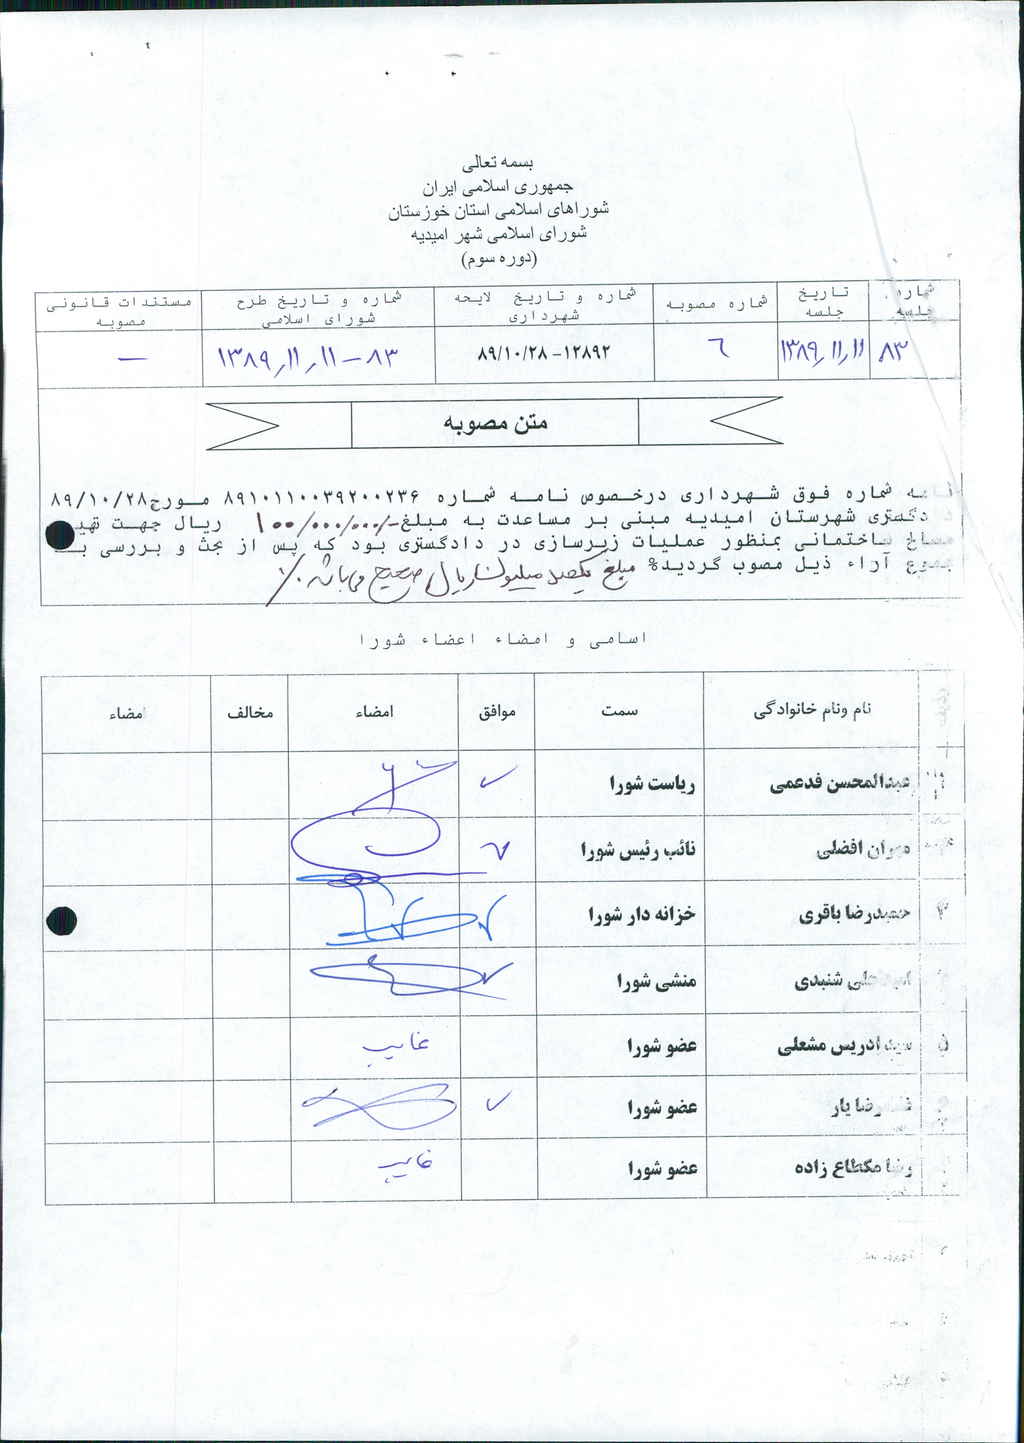 بسمه تعالی
جمهوری اسلامی ایران
شوراهای اسلامی استان خوزستان
شورای اسلامی شهر امیدیه
(دوره سوم)
شماره جلسه	تاریخ جلسه	شماره مصوبه	شماره و تاریخ لایحه شهرداری	شماره و تاریخ طرح شورای اسلامی	مستندات قانونی مصوبه
۸۳	۱۳۸۹/۱۱/۱۱	۶	۸۹/۱۰/۲۸-۱۲۸۹۲	۸۳-۱۳۸۹/۱۱/۱۱	—
متن مصوبه
نامه شماره فوق شهرداری درخصوص نامه شماره ۸۹۱۰۱۱۰۰۳۹۲۰۰۲۳۶ مورخ۸۹/۱۰/۲۸
دادگستری شهرستان امیدیه مبنی بر مساعدت به مبلغ-/۱۰۰/۰۰۰/۰۰۰ ریال جهت تهیه
مصالح ساختمانی بمنظور عملیات زیرسازی در دادگستری بود که پس از بحث و بررسی با
مجموع آراء ذیل مصوب گردید% مبلغ یکصد میلیون ریال صحیح می باشد./
اسامی و امضاء اعضاء شورا
نام ونام خانوادگی	سمت	موافق	امضاء	مخالف	امضاء
عبدالمحسن فدعمی	ریاست شورا	✓
مهران افضلی	نائب رئیس شورا	✓
حمیدرضا باقری	خزانه دار شورا	✓
شنبدی	منشی شورا	✓
۵	سید ادریس مشعلی	عضو شورا	غایب
یار	عضو شورا	✓
رضا مکطاع زاده	عضو شورا	غایب